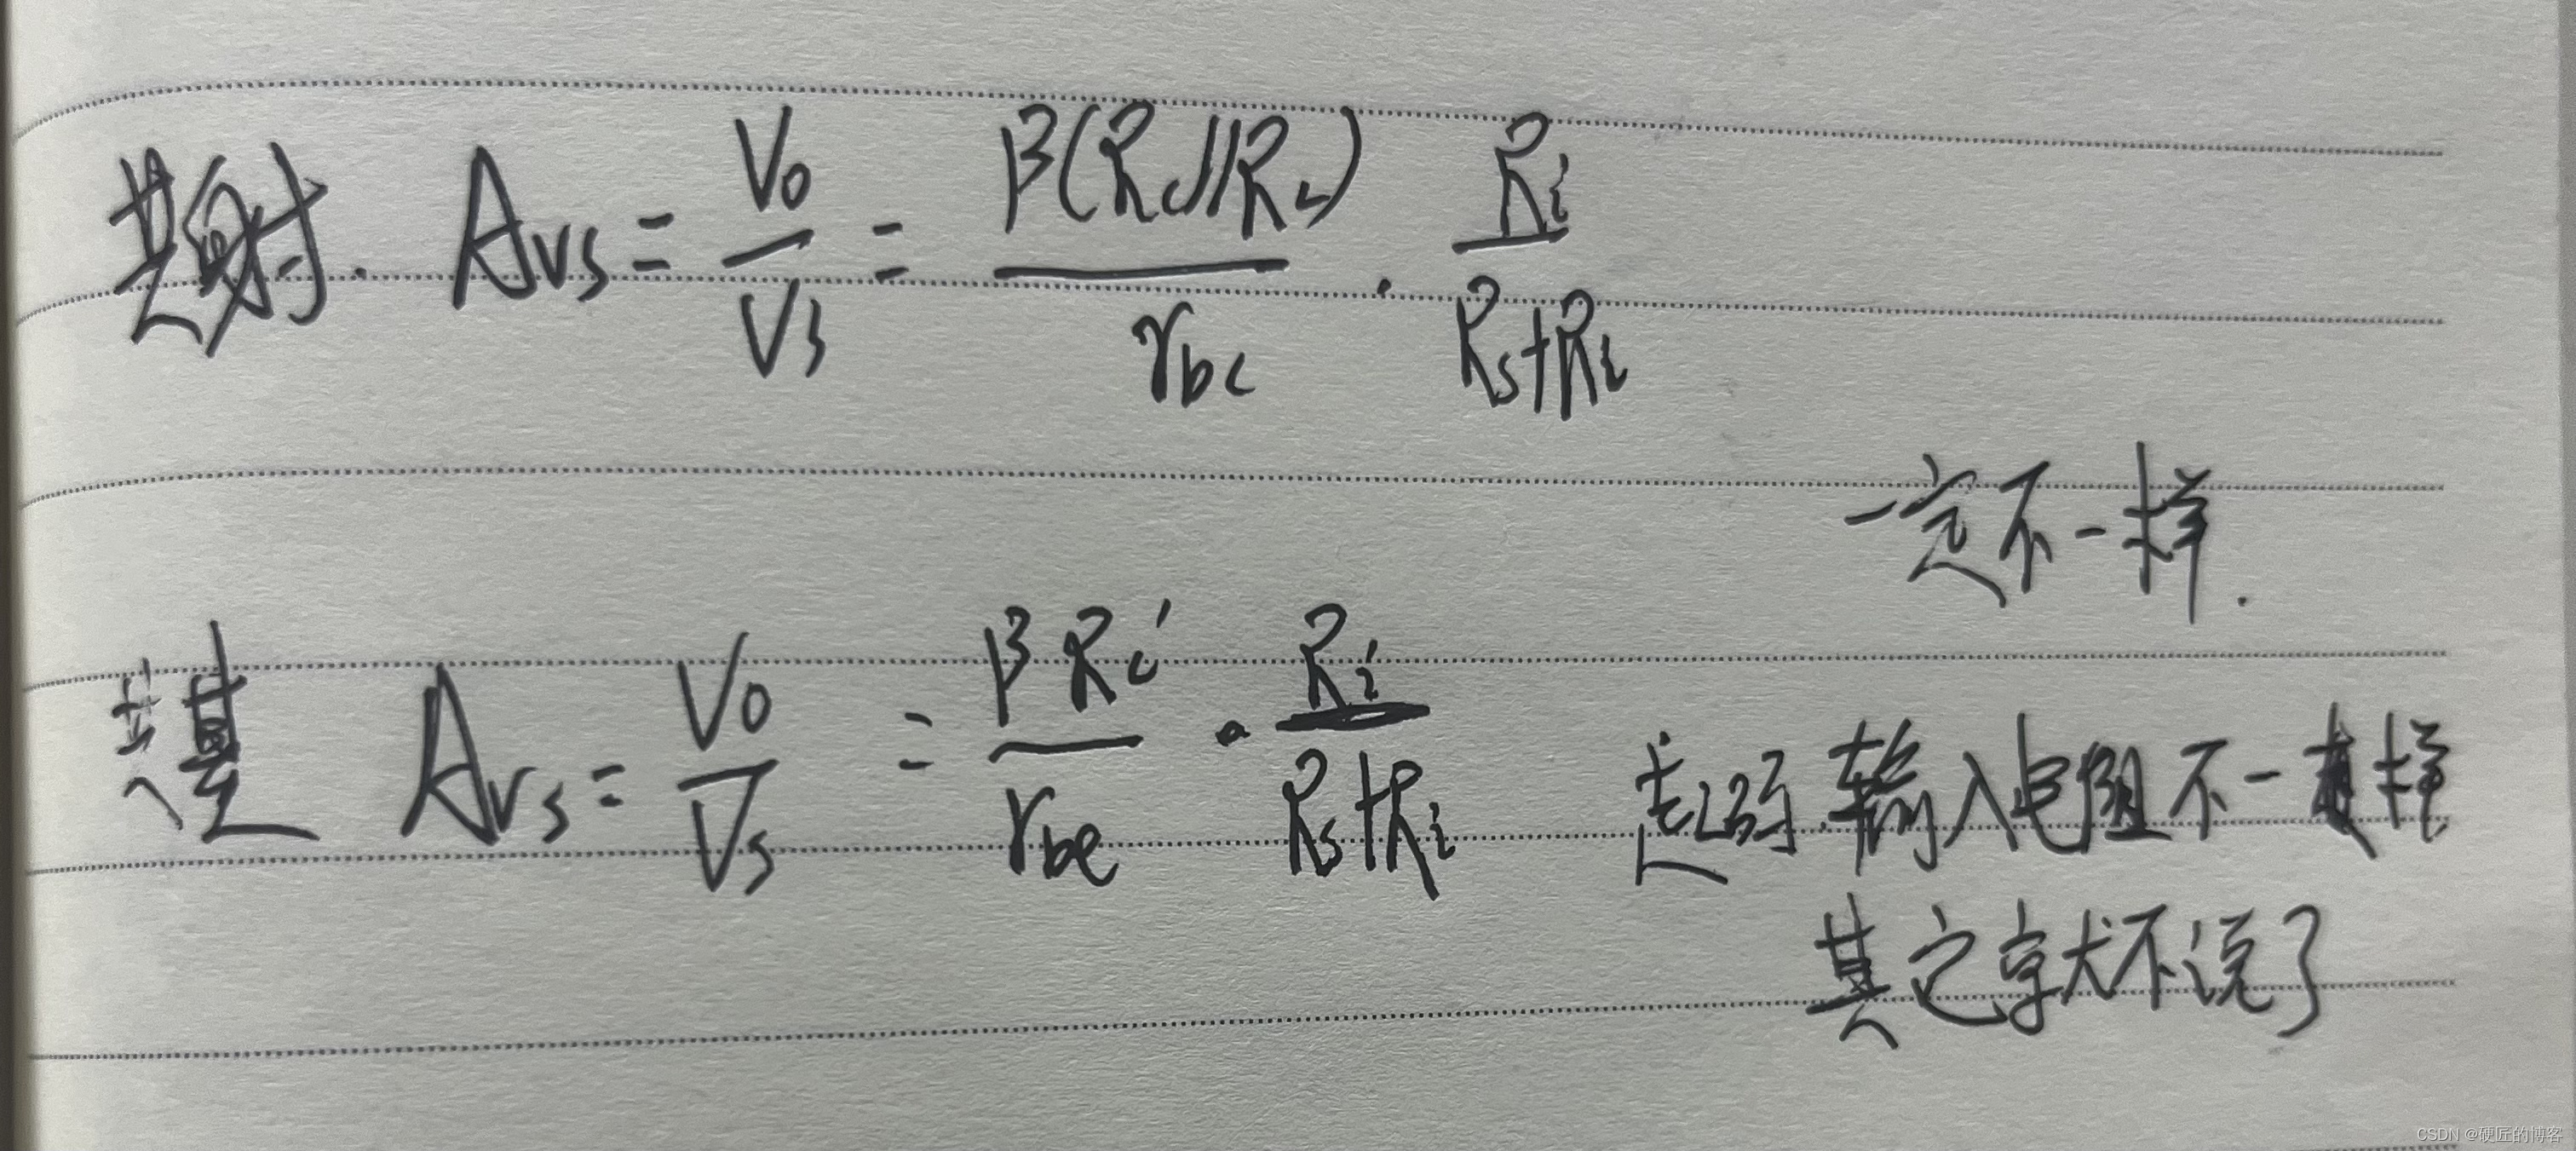 共射. Avs = Vo/Vs = β(Rc//RL)/rbc · Ri/(Rs+Ri)
一定不一样.
共基 Avs = Vo/Vs = βRc'/rbe · Ri/(Rs+Ri)
起码输入电阻不一样
其它就不说了
CSDN @硬匠的博客